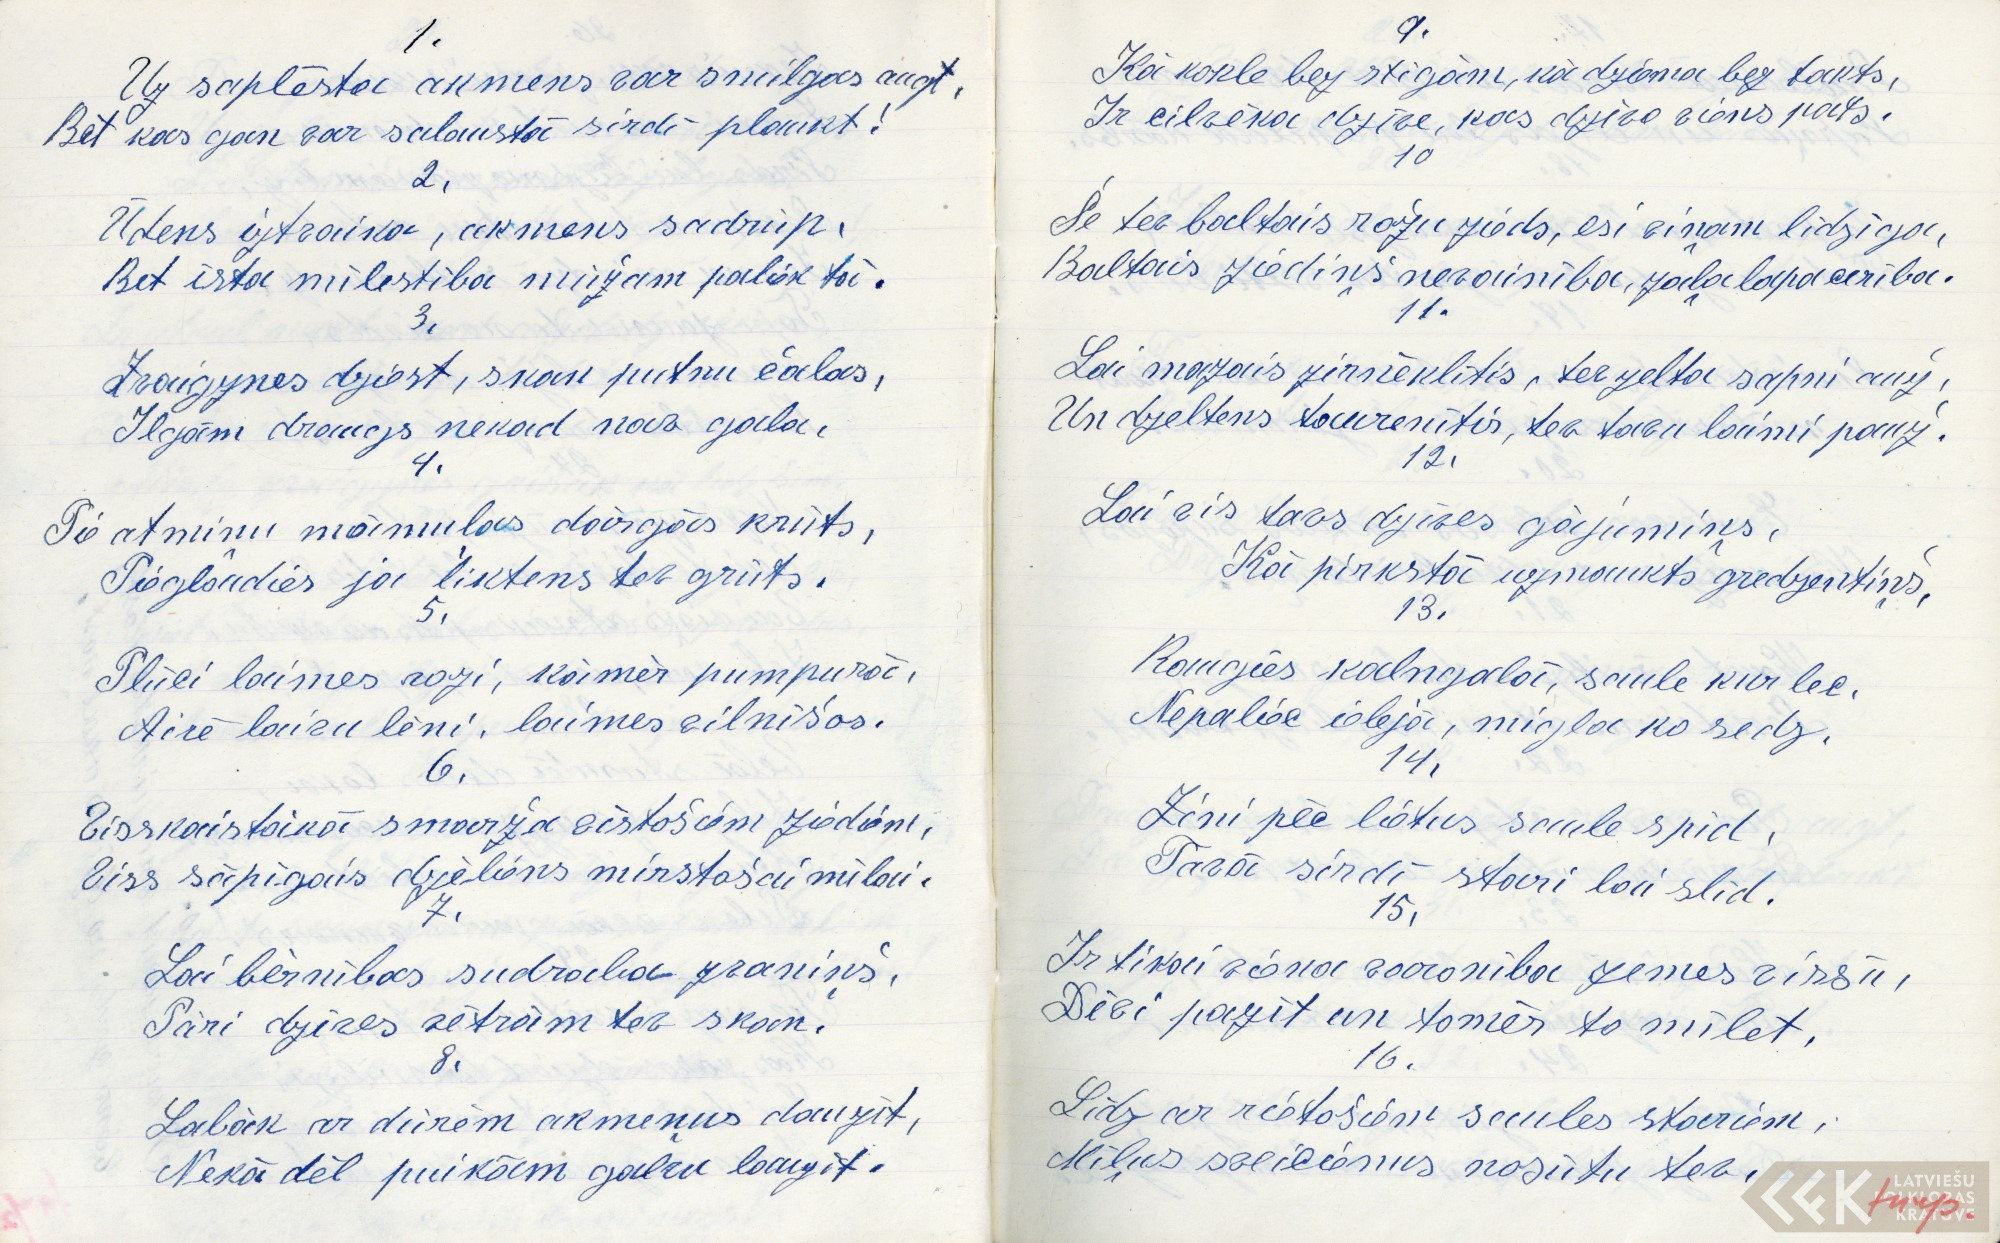 1.
Uz saplēsta akmens var smilgas augt,
Bet kas gan var salaustā sirdī plaukt!
2.
Ūdens iztvaiko, akmens sadrūp,
Bet īsta mīlestība mūžam paliek tā.
3.
Zvaigznes dziest, skan putnu čalas,
Ilgām draugs nekad nav gala,
4.
Pie atmiņu māmuļas dārgās krūts,
Pieglaudies ja liktens tev grūts.
5.
Plūci laimes rozi, kāmēr pumpurōi,
Airē laivu lēni, laimes vilnīšos.
6.
Visskaistākā smarža vīstošiem ziediem,
Viss sāpīgais dzēliens mirstošai mīlai.
7.
Lai bērnības sudraba zvaniņš,
Pāri dzīves vētrām tev skan.
8.
Labāk ar dūrēm akmeņus dauzīt,
Nekā dēļ puikām galvu lauzīt.
9.
Kā kokle bez stīgām, kā dziema bez takts,
Ir cilvēka dzīve, kas dzīvo viens pats.
10
Še tev baltais rožu zieds, esi viņam līdzīga,
Baltais ziediņš nevainība, zaļa lapa cerība.
11.
Lai mazais zirneklītis, tev zelta sapni auž,
Un dzeltens taurenītis, tev tavu laimi pauž.
12.
Lai vis tavs dzīves gājumiņs,
Kā pirkstā uzmaukts gredzentiņš,
13.
Raugies kalngalā, saule kur lec,
Nepaliec ielejā, migla ko sedz.
14.
Zini pēc lietus saule spīd,
Tavā sirdī stari lai slīd.
15.
Ir tikai viena varonība zemes virsū,
Dzīvi pazīt un tomēr to mīlet,
16.
Līdz ar rietošiem saules stariem,
Mīļus sveicienus nosūtu tev.
LATVIEŠU
FOLKLORAS
KRĀTUVE
turp.